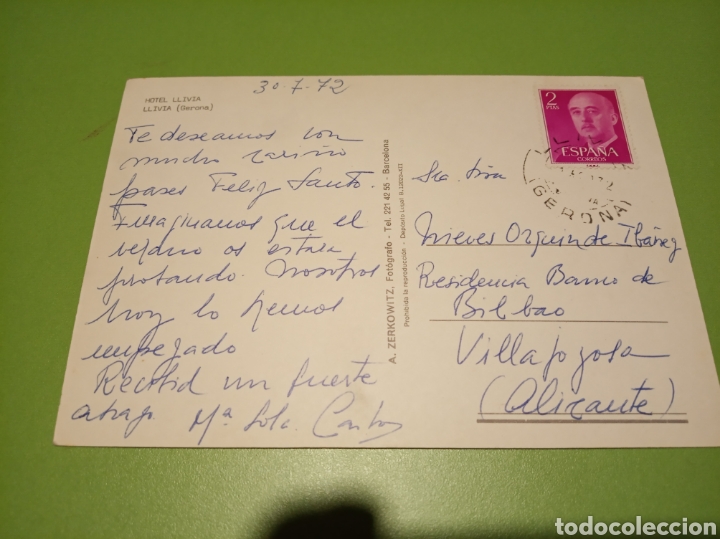 30-7-72
HOTEL LLIVIA
LLIVIA (Gerona)
Te deseamos con
mucho cariño
pases Feliz Santo.
Imaginamos que el
verano os estara
probando. Nosotros
hoy lo hemos
empezado
Recibid un fuerte
abrazo Mª Lola Carlos
A. ZERKOWITZ, Fotógrafo - Tel. 221 42 55 - Barcelona
Prohibida la reproducción - Depósito Legal B.
2
PTAS
ESPAÑA
CORREOS
(GERONA)
Sra.
Nieves de Ibáñez
Residencia Banco de
Bilbao
Villajoyosa
(Alicante)
todocoleccion